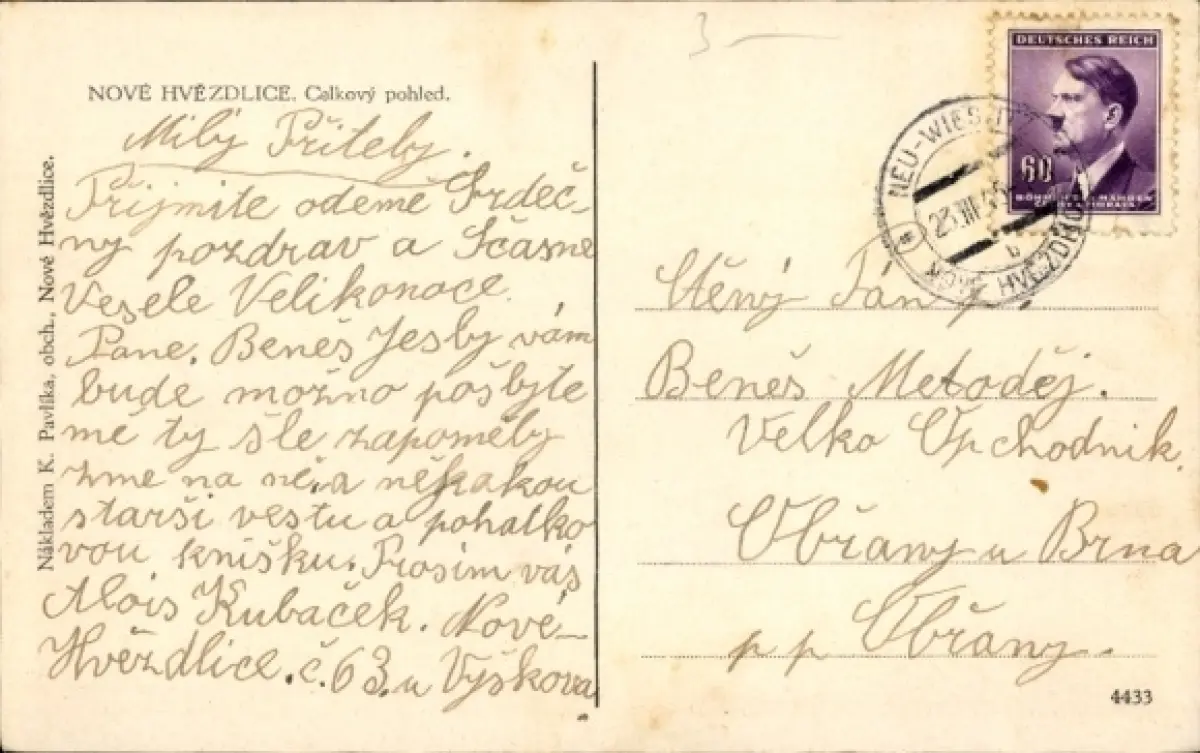 3
NOVÉ HVĚZDLICE. Celkový pohled.
Nákladem K. Pavlíka, obch., Nové Hvězdlice.
Milý Přítelby.
Přijmite odemě Srdeč-
ny pozdrav a Sčasne
Vesele Velikonoce
Pane. Beneš Jesby vám
bude možno pošbyte
mé ty šle zapoměly
zme na ně, a nějakou
starši vestu a pohatko
vou knišku. Prosim vás
Alois Kubaček. Nové-
Hvězdlice. č. 63. u Vyškova
DEUTSCHES REICH
60
BÖHMEN U. MÄHREN
ČECHY A MORAVA
NEU-WIES
23.III.
b
NOVÉ HVĚZD
Ctěný Pán
Beneš Metoděj.
Velko Opchodnik.
Obřany u Brna
pp Obřany.
4433